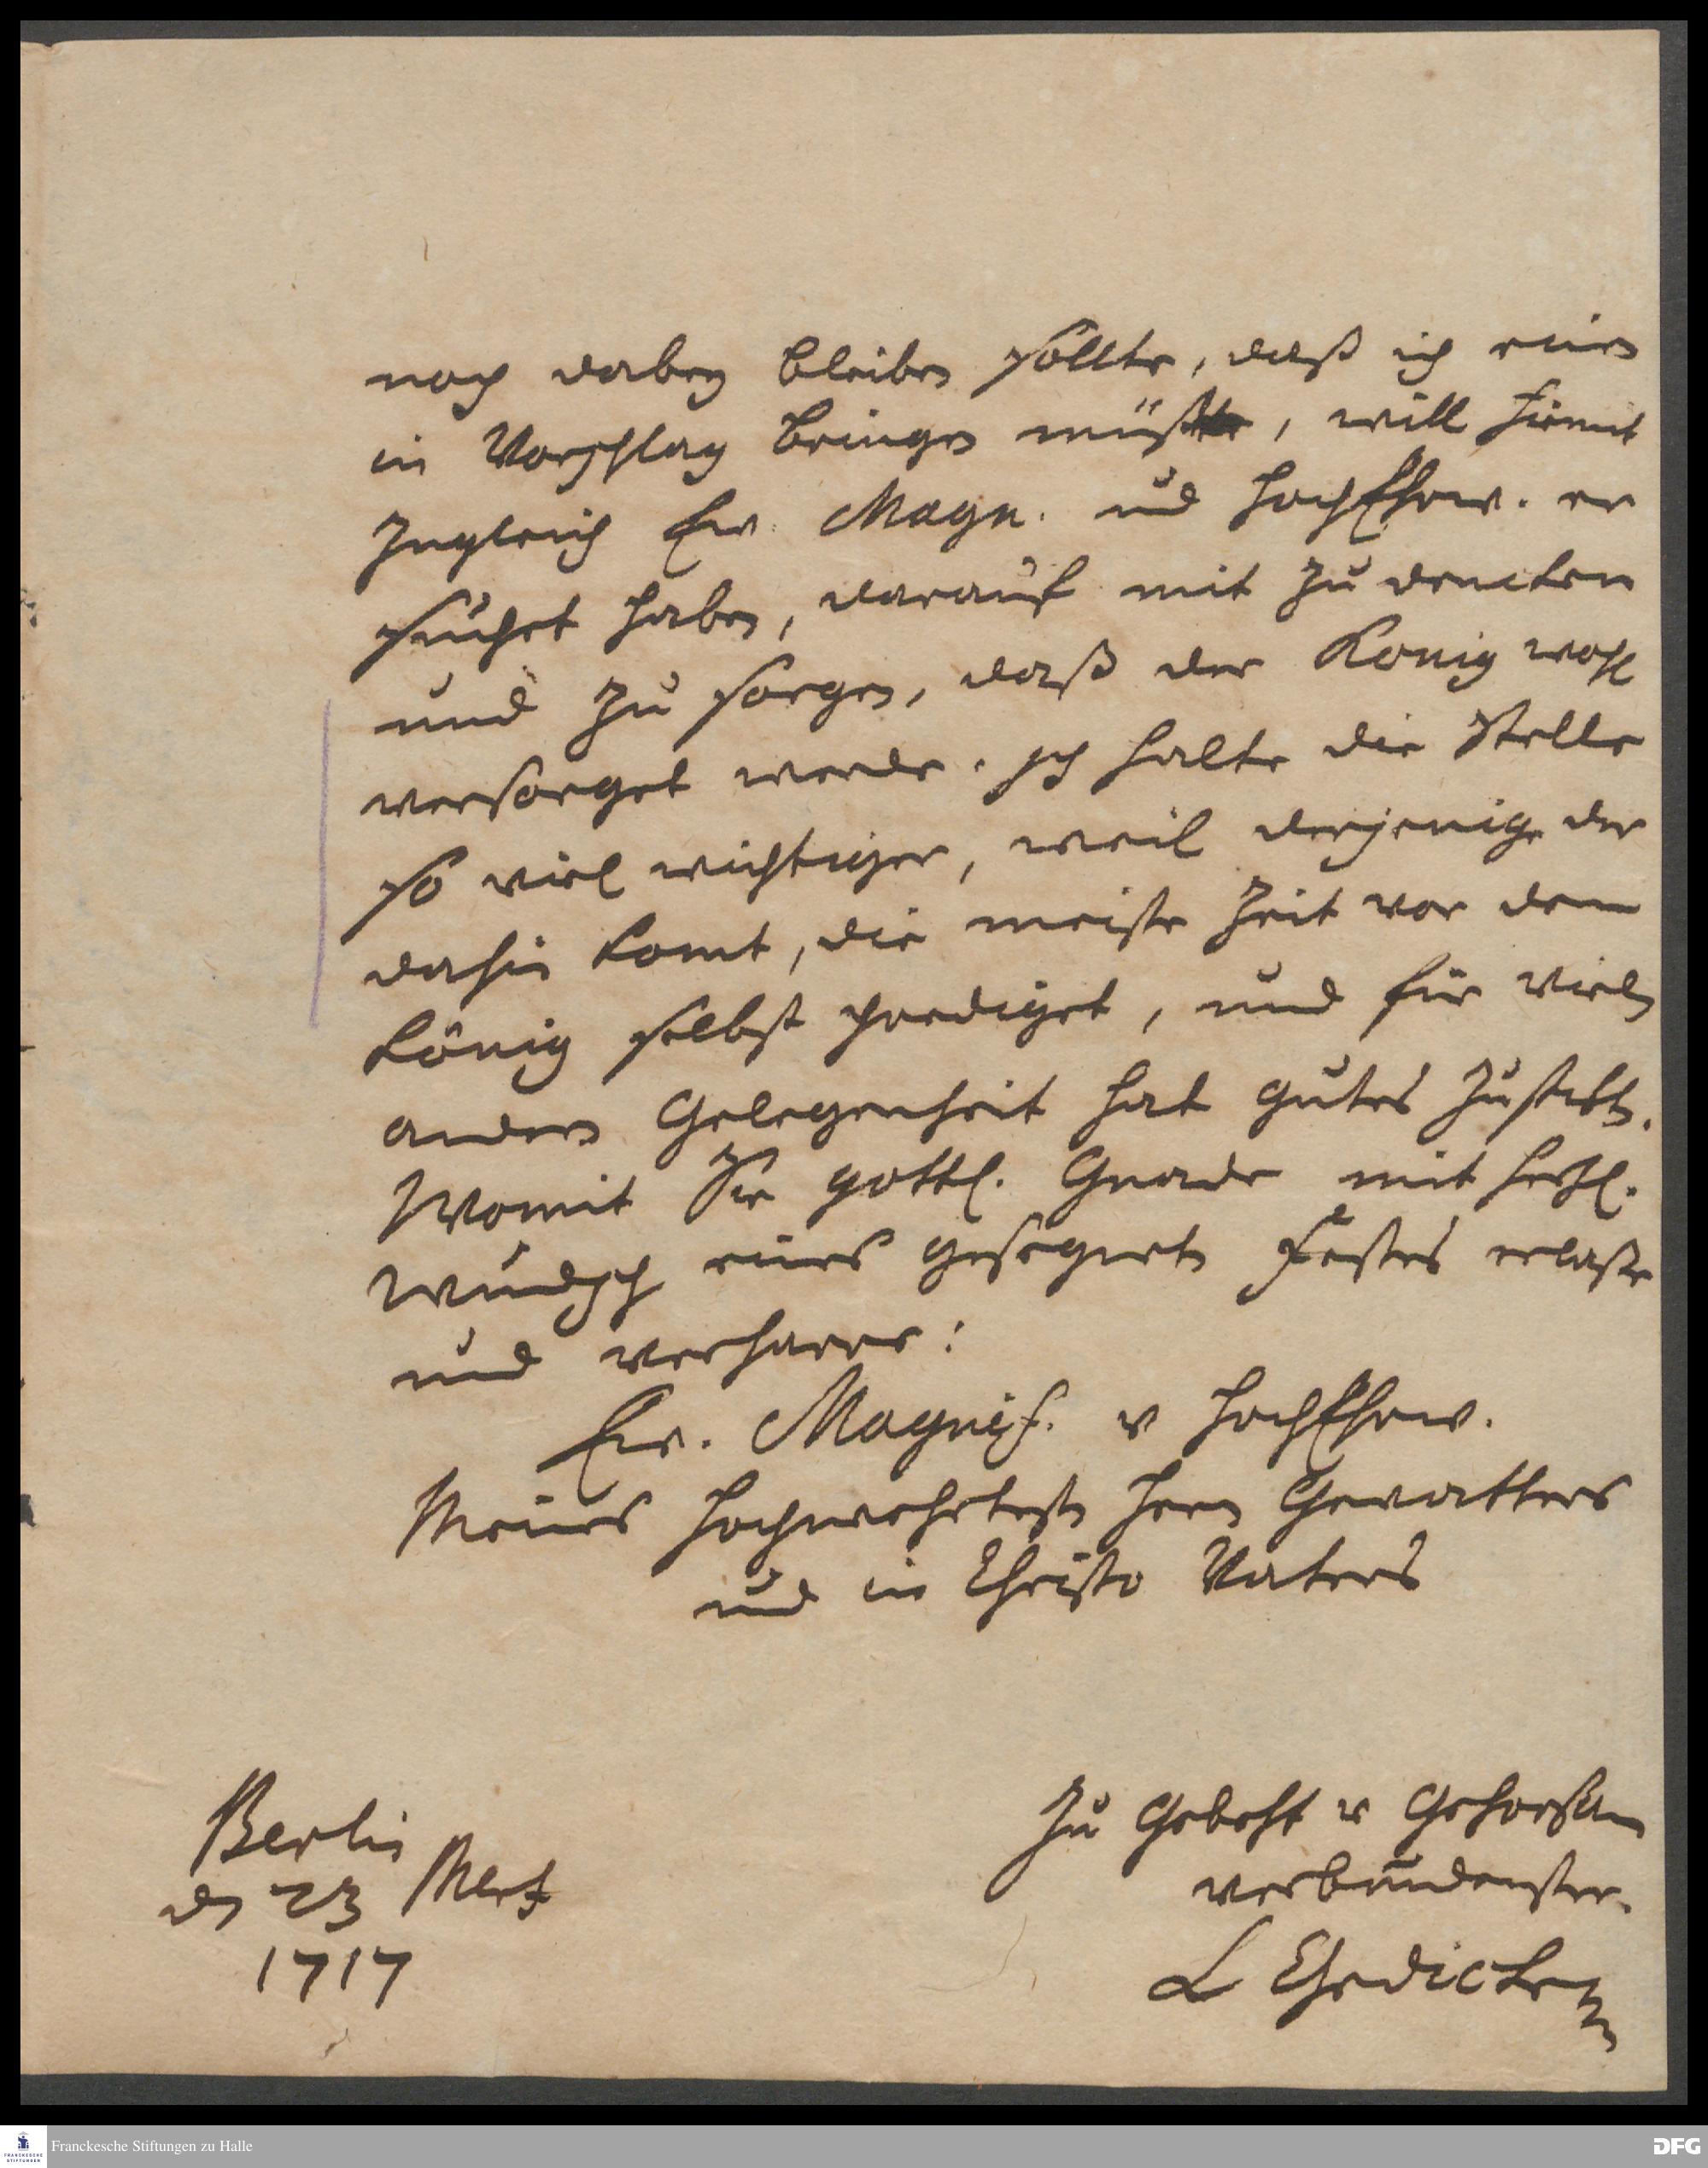 noch dabey bleiben sollte, daß ich einen
in Vorschlag bringen müßte, will hiemit
zugleich Ew. Magn. und HochEhrw. er
suchet haben, darauf mit zu dencken
und zu sorgen, daß der Konig wohl
versorget werde. Ich halte die Stelle
so viel wichtiger, weil derjenige der
dahin komt, die meiste Zeit vor dem
König selbst prediget, und für vielen
andern Gelegenheit hat gutes zu stifften.
Womit Sie göttl. Gnade mit hertzl.
Wundsch eines gesegneten Festes erlaße
und verharre:
Ew. Magnif. u HochEhrw.
Meines Hochwehrtesten Herrn Gevatters
und in Christo Vaters
Zu Gebeht u Gehorsam
verbundenster.
L Ehedicken
Berlin
den 23 Mertz
1717
Franckesche Stiftungen zu Halle
DFG